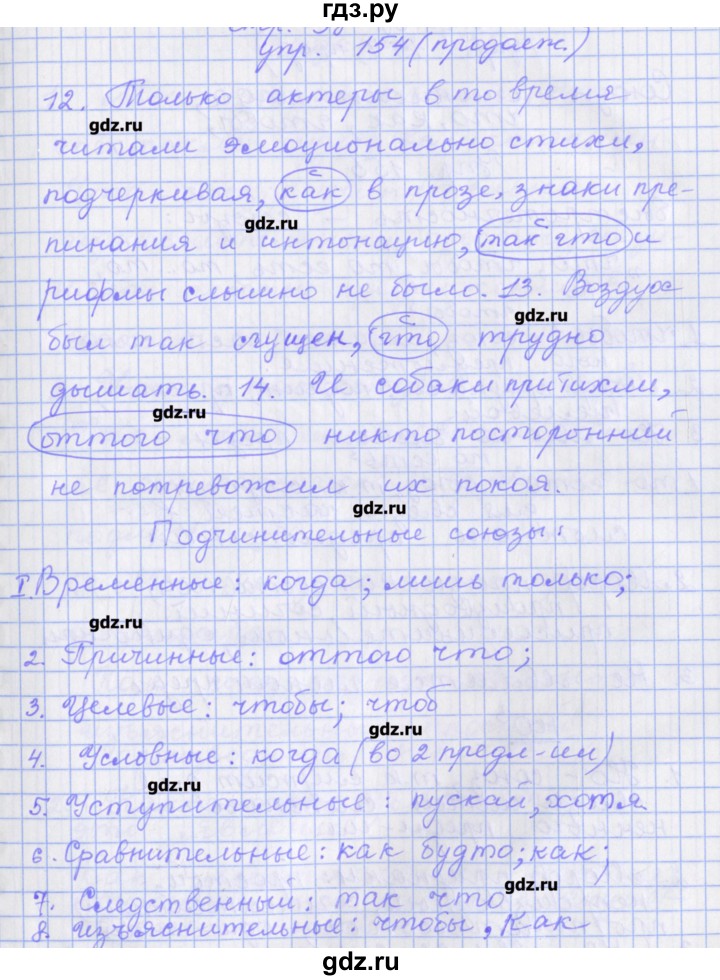 гдз.ру
упр. 154 (продолж.)
12. Только актеры в то время
gdz.ru
читали эмоционально стихи,
с
подчеркивая, как в прозе, знаки пре-
gdz.ru
с
пинания и интонацию, так что и
рифмы слышно не было. 13. Воздух
gdz.ru
с
был так сгущен, что трудно
дышать. 14. И собаки притихли,
gdz.ru
с
оттого что никто посторонний
не потревожил их покоя.
gdz.ru
Подчинительные союзы:
I. Временные: когда; лишь только;
gdz.ru
2. Причинные: оттого что;
3. Целевые: чтобы; чтоб
gdz.ru
4. Условные: когда (во 2 предл-ии)
gdz.ru
5. Уступительные: пускай, хотя
6. Сравнительные: как будто; как;
gdz.ru
7. Следственный: так что
8. изъяснительные: чтобы, как
gdz.ru
gdz.ru